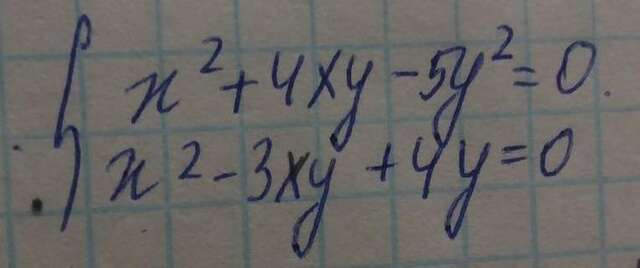 x² + 4xy - 5y² = 0.
x² - 3xy + 4y = 0